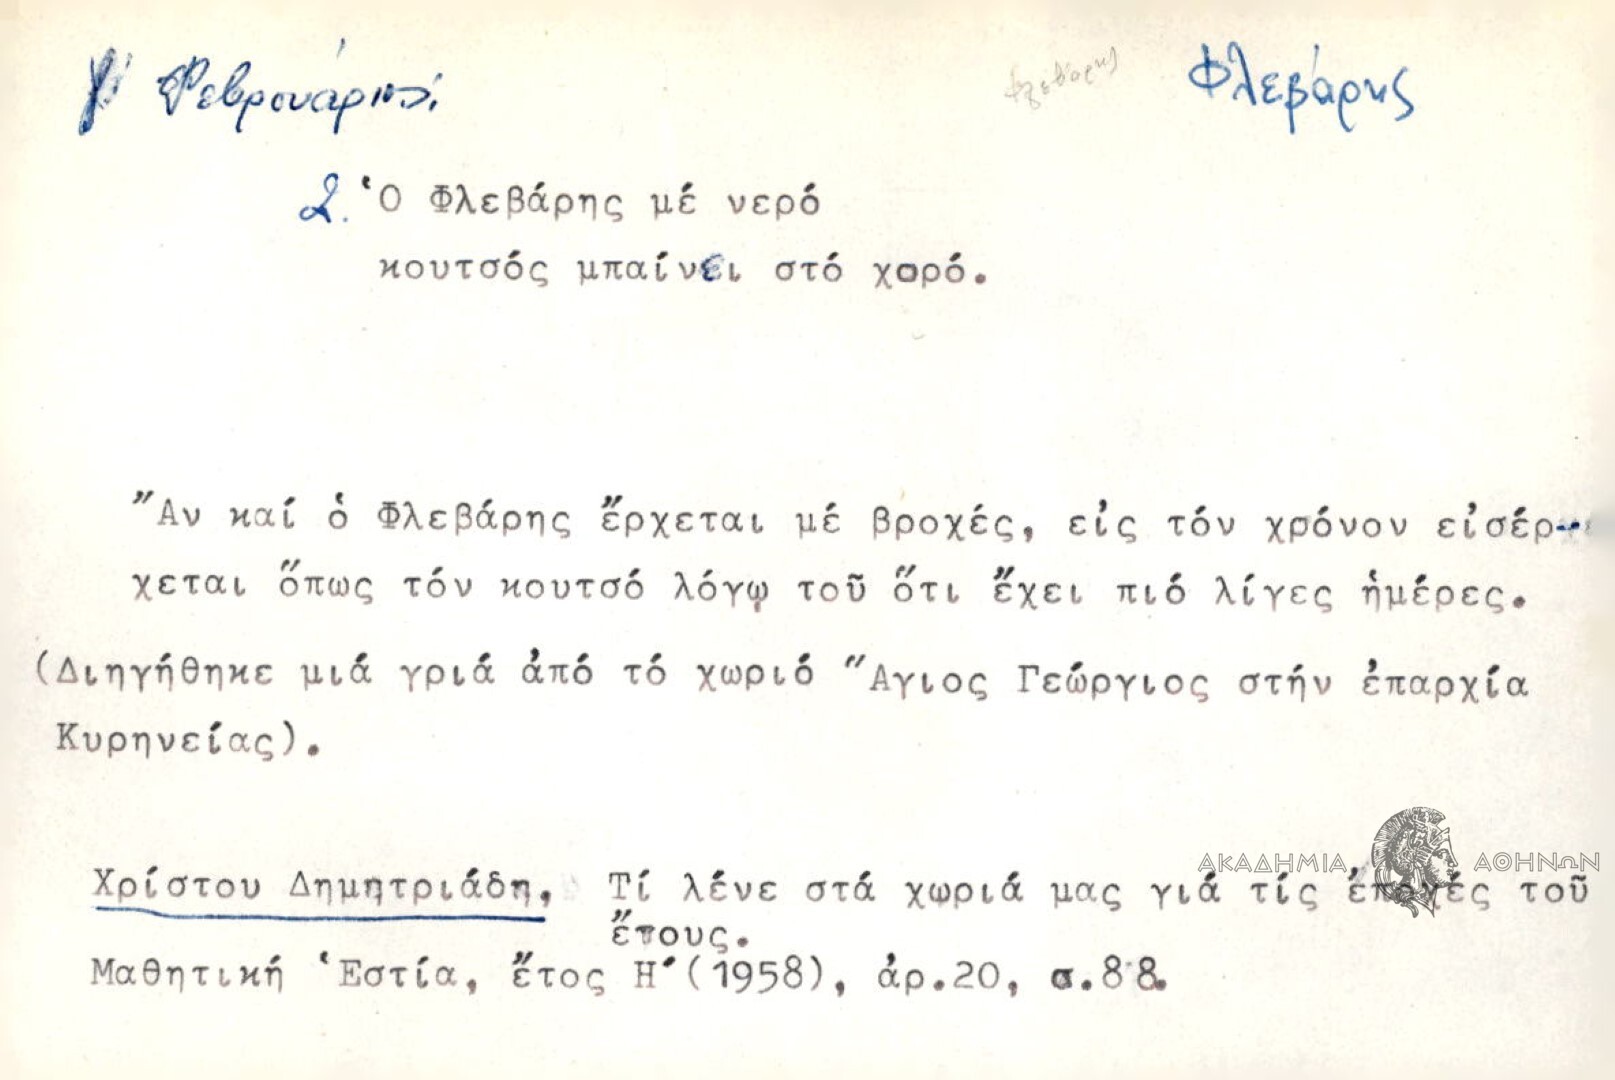 γ' Φεβρουάριος
Φλεβάρης
Φλεβάρης
2. Ὁ Φλεβάρης μέ νερό
κουτσός μπαίνει στό χορό.
Ἄν καί ὁ Φλεβάρης ἔρχεται μέ βροχές, εἰς τόν χρόνον εἰσέρ-
χεται ὅπως τόν κουτσό λόγῳ τοῦ ὅτι ἔχει πιό λίγες ἡμέρες.
(Διηγήθηκε μιά γριά ἀπό τό χωριό Ἅγιος Γεώργιος στήν ἐπαρχία
Κυρηνείας).
ΑΚΑΔΗΜΙΑ ΑΘΗΝΩΝ
Χρίστου Δημητριάδη, Τί λένε στά χωριά μας γιά τίς ἐποχές τοῦ
ἔτους.
Μαθητική Ἑστία, ἔτος Η΄(1958), ἀρ.20, σ.88.